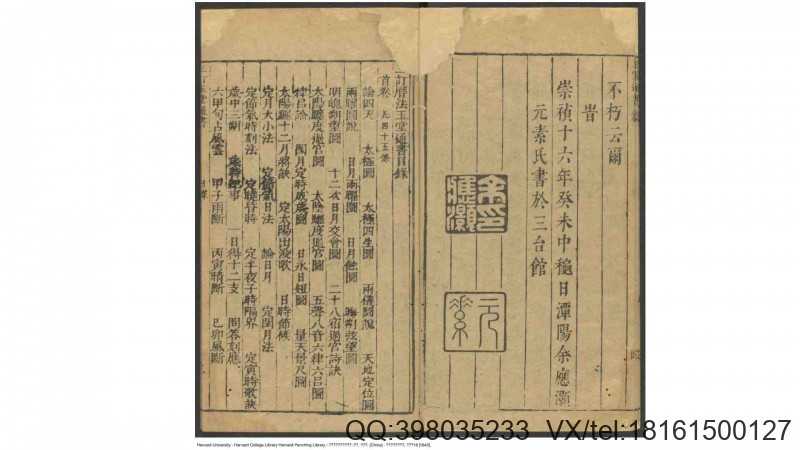 不朽云爾
旹
崇禎十六年癸未中穐日潭陽余應灝
元素氏書於三台館
余應灝印
元素
訂曆法玉堂通書目錄
首卷 凡四十五條
論四天 太極圖 太極四生圖 兩儀圖說 天地定位圖
兩曜圖說 日月兩曜圖 日月蝕圖 晦朔弦望圖
明魄朔望圖 十二次日月交會圖 二十八宿過宮詩訣
太陽躔度過宮圖 太陰躔度過宮圖 五聲八音六律六呂圖
律呂論 閏月定時成歲圖 日永日短圖 量天景尺圖
太陽躔十二月將訣 定太陽出沒歌 日時節候
定月大小法 定節氣日法 論日月 定閏月法
定節氣時刻法 定曉昏時 定子夜子時陽界 定寅時歌訣
歲中三朝 事 一日得十二支 問答刻應
六甲旬占風雲 甲子雨斷 丙寅晴斷 己卯風斷
QQ:398035233 VX/tel:18161500127
Harvard University - Harvard College Library Harvard-Yenching Library